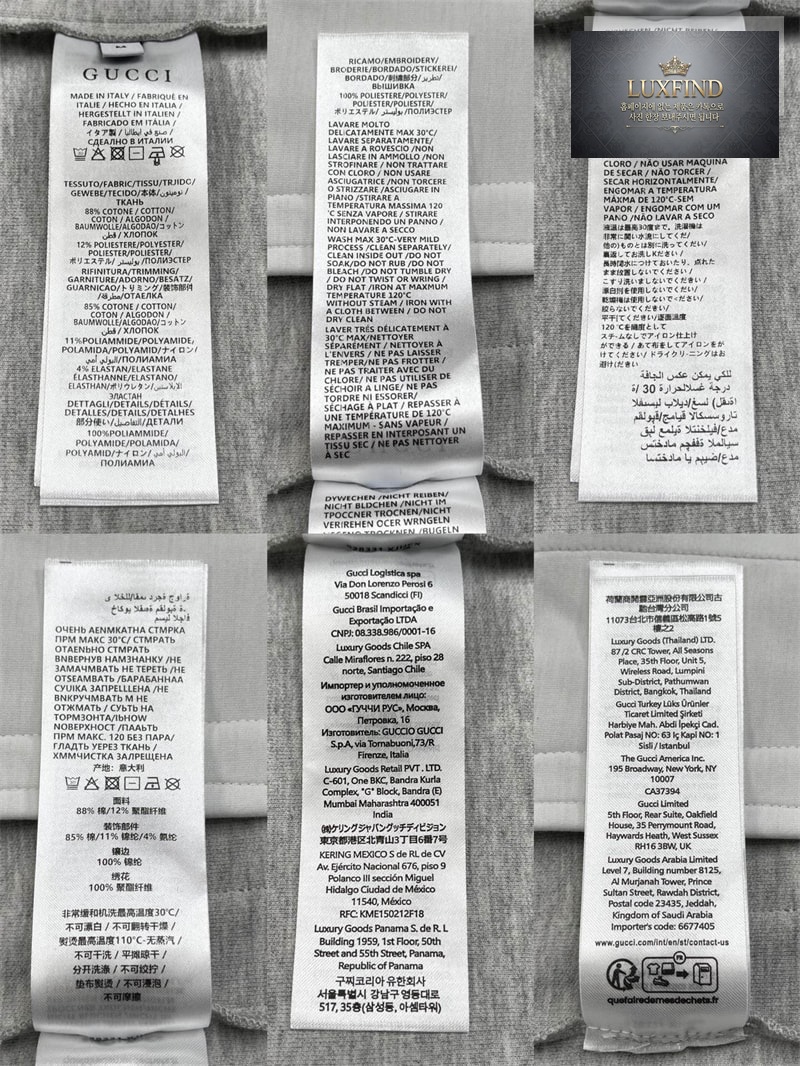 M
GUCCI
MADE IN ITALY / FABRIQUÉ EN
ITALIE / HECHO EN ITALIA /
HERGESTELLT IN ITALIEN /
FABRICADO EM ITÁLIA /
イタア製 / صنع في ايطاليا /
СДЕАЛНО В ИТАЛИИ
TESSUTO/FABRIC/TISSU/TRJIDO/
GEWEBE/TECIDO/本体/نوميتون/
ТКАНЬ
88% COTONE / COTTON/
COTON / ALGODON /
BAUMWOLLE/ALGODAO/コットン
/ قطن / ХЛОПОК
12% POLIESTERE/POLYESTER/
POLYESTER/POLIESTER/
ポリエステル / بوليستر /ПОЛИЭСТЕР
RIFINITURA/TRIMMING/
GARNITURE/ADORNO/BESATZ/
GUARNICAO/トリミング/装饰部件
/مطرفة/ОТАЕЛКА
85% COTONE / COTTON /
COTON / ALGODON /
BAUMWOLLE/ALGODAO/コットン
/ قطن / ХЛОПОК
11%POLIAMMIDE/POLYAMIDE/
POLAMIDA/POLYAMID/ナイロン/
البولي أمي/ПОЛИАМИА
4% ELASTAN/ELASTANE/
ÉLASTHANNE/ELASTANO/
ELASTHAN/ポリウレタン/الإيلاستين/
ЭЛАСТАН
DETTAGLI/DETAILS/DÉTAILS/
DETALLES/DETAILS/DETALHES
部分使い/التفاصيل/ДЕТАЛИ
100%POLIAMMIDE/
POLYAMIDE/POLAMIDA/
POLYAMID/ナイロン/البولي أمي/
ПОЛИАМИА
RICAMO/EMBROIDERY/
BRODERIE/BORDADO/STICKEREI/
BORDADO/刺繍部分/تطريز/
ВЫШИВКА
100% POLIESTERE/POLYESTER/
POLYESTER/POLIESTER/
ポリエステル/ بوليستر /ПОЛИЭСТЕР
LAVARE MOLTO
DELICATAMENTE MAX 30°C/
LAVARE SEPARATAMENTE/
LAVARE A ROVESCIO /NON
LASCIARE IN AMMOLLO /NON
STROFINARE / NON TRATTARE
CON CLORO / NON USARE
ASCIUGATRICE /NON TORCERE
O STRIZZARE /ASCIUGARE IN
PIANO /STIRARE A
TEMPERATURA MASSIMA 120
°C SENZA VAPORE / STIRARE
INTERPONENDO UN PANNO /
NON LAVARE A SECCO
WASH MAX 30°C-VERY MILD
PROCESS /CLEAN SEPARATELY/
CLEAN INSIDE OUT /DO NOT
SOAK/DO NOT RUB /DO NOT
BLEACH /DO NOT TUMBLE DRY
/ DO NOT TWIST OR WRING /
DRY FLAT /IRON AT MAXMUM
TEMPERATURE 120°C
WITHOUT STEAM / IRON WITH
A CLOTH BETWEEN / DO NOT
DRY CLEAN
LAVER TRÉS DÉLICATEMENT À
30°C MAX/NETTOYER
SÉPARÉMENT / NETTOYER À
L'ENVERS / NE PAS LAISSER
TREMPER/NE PAS FROTTER /
NE PAS TRAITER AVEC DU
CHLORE/ NE PAS UTILISER DE
SÉCHOIR A LINGE/ NE PAS
TORDRE NI ESSORER/
SÉCHAGE À PLAT / REPASSER À
UNE TEMPÉRATURE DE 120°C
MAXIMUM - SANS VAPEUR /
REPASSER EN INTERPOSANT UN
TISSU SEC / NE PAS NETTOYER
À SEC
DYWECHEN /NICHT REIBEN/
NICHT BLDCHEN /NICHT IM
TPOCCNER TROCNEN/NICHT
VERIREHEN OCER WRNGELN
LUXFIND
홈페이지에 없는 제품은 카톡으로
사진 한장 보내주시면 됩니다
CLORO / NÃO USAR MAQUINA
DE SECAR / NÃO TORCER /
SECAR HORIZONTALMENTE/
ENGOMAR A TEMPERATURA
MÁXMA DE 120°C-SEM
VAPOR / ENGOMAR COM UM
PANO /NÃO LAVAR A SECO
液温は最高30度まで。洗濯機は
非常に開い水流にしてくだ/
他のものとは別に洗ってくたい/
裏返してお洗しKださい /
長時降水につけておいたり、点れた
まま放置しないでくたさい /
こすリ洗いましないでくたさい /
漂白別を使用しないでくたい/
乾燥梅は使用しないで<ださい/
絞らないでくたさい/
平干[てください/逐面温度
120 ℃を緯度として
スチ-ムなしてアイロン仕上げ
がでをる / あて布をしてアイロンをが
けてください/ ドライクリ-ニングはお
避けください
ОЧЕНЬ AENМКATHA CTMPKA
ПРМ МАКС 30°C/ CTMPATЬ
OTAEЛЬHO CTMPATЬ
BNBEPHУB HAM3HAHKY /HE
3AMAЧMBATЬ HE TEPETЬ /HE
OTCEAMBATЬ /БАРАБАННАА
CYLIKA 3AПPELLLEHA /HE
BNKPYЧMBATЬ M HE
OTЖMATЬ / CYЬTЬ HA
TOPM3OHTA/IЬHOW
NOBEPXHOCT /ПAAЬTЬ
ПРМ МАКС. 120 БE3 ПAPA/
ГЛAДTЬ УEPE3 TKAHЬ /
XMMЧИCTKA 3AЛPEЩEHA
产地：意大利
面料
88% 棉/12% 聚酯纤维
装饰部件
85% 棉/11% 锦纶/4% 氨纶
镶边
100% 锦纶
绣花
100% 聚酯纤维
非常缓和机洗最高温度30℃/
不可漂白 / 不可翻转干燥 /
熨烫最高温度110℃-无蒸汽 /
不可干洗 / 平摊晾干 /
分开洗涤 / 不可绞拧 /
垫布熨烫 / 不可浸泡 /
不可摩擦
Gucci Logistica spa
Via Don Lorenzo Perosi 6
50018 Scandicci (FI)
Gucci Brasil Importação e
Exportação LTDA
CNPJ: 08.338.986/0001-16
Luxury Goods Chile SPA
Calle Miraflores n. 222, piso 28
norte, Santiago Chile
Импортер и уполномоченное
изготовителем лицо:
ООО «ГУЧЧИ РУС», Москва,
Петровка, 16
Изготовитель: GUCCIO GUCCI
S.p.A, via Tornabuoni,73/R
Firenze, Italia
Luxury Goods Retail PVT . LTD.
C-601, One BKC, Bandra Kurla
Complex, "G" Block, Bandra (E)
Mumbai Maharashtra 400051
India
㈱ケリングジャパングッチディビジョン
東京都港区北青山3丁目6番7号
KERING MEXICO S de RL de CV
Av. Ejército Nacional 676, piso 9
Polanco III sección Miguel
Hidalgo Ciudad de México
11540, México
RFC: KME150212F18
Luxury Goods Panama S. de R. L
Building 1959, 1st Floor, 50th
Street and 55th Street, Panama,
Republic of Panama
구찌코리아 유한회사
서울특별시 강남구 영동대로
517, 35층(삼성동, 아셈타워)
荷蘭商開雲亞洲股份有限公司古
馳台灣分公司
11073台北市信義區松高路1號5
樓之2
Luxury Goods (Thailand) LTD.
87/2 CRC Tower, All Seasons
Place, 35th Floor, Unit 5,
Wireless Road, Lumpini
Sub-District, Pathumwan
District, Bangkok, Thailand
Gucci Turkey Lüks Ürünler
Ticaret Limited Şirketi
Harbiye Mah. Abdi İpekçi Cad.
Polat Pasaj NO: 63 İç Kapi NO: 1
Sisli / Istanbul
The Gucci America Inc.
195 Broadway, New York, NY
10007
CA37394
Gucci Limited
5th Floor, Rear Suite, Oakfield
House, 35 Perrymount Road,
Haywards Heath, West Sussex
RH16 3BW, UK
Luxury Goods Arabia Limited
Level 7, Building number 8125,
Al Murjanah Tower, Prince
Sultan Street, Rawdah District,
Postal code 23435, Jeddah,
Kingdom of Saudi Arabia
Importer's code: 6677405
www.gucci.com/int/en/st/contact-us
FR
quefairedemesdechets.fr